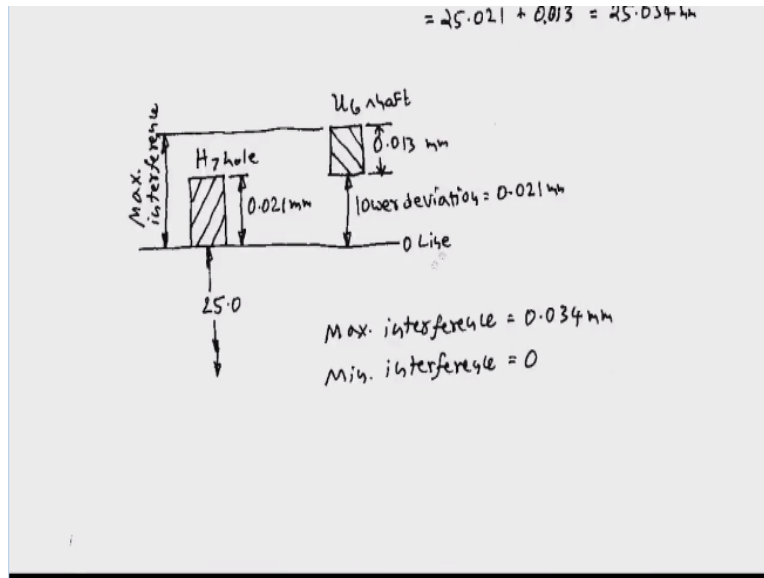 = 25.021 + 0.013 = 25.034 mm
U6 shaft
Max. interference
0.013 mm
H7 hole
0.021 mm
lower deviation = 0.021 mm
0 Line
25.0
Max. interference = 0.034 mm
Min. interference = 0